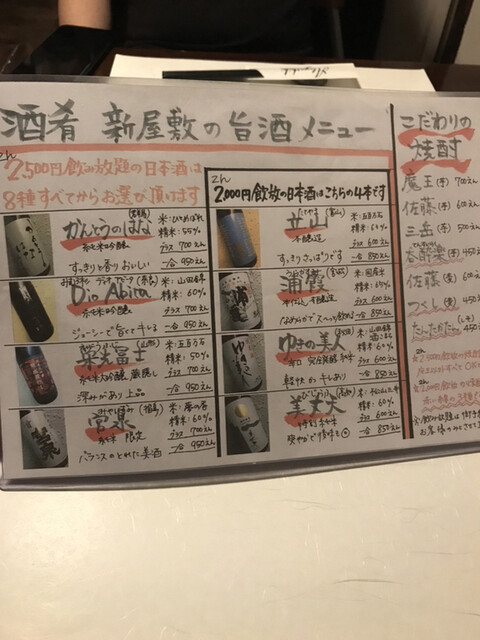 酒肴 新屋敷の旨酒メニュー
2,500円飲み放題の日本酒は
8種すべてからお選び頂けます
2,000円飲放の日本酒はこちらの4本です
かんとうのはな
米:ひめのもち
精米:55%
グラス 700えん
一合 950えん
すっきり香りおいしい
Dio Abita
米:山田錦
精米:60%
グラス 700えん
一合 950えん
ジューシーで旨くてキレる
栄光冨士
米:五百石
精米:50%
グラス 700えん
一合 950えん
深みがあり上品
宮泉
米:夢の香
精米:60%
グラス 700えん
一合 950えん
バランスのとれた美酒
立山
本醸造
米:五百石
精米:61%
グラス 600えん
一合 850えん
すっきりさっぱりです
浦霞
精米:65%
グラス 600えん
一合 850えん
ゆきの美人
精米:60%
グラス 600えん
一合 850えん
軽快かつキレあり
美丈夫
精米:60%
グラス 600えん
一合 850えん
こだわりの
焼酎
魔王(芋) 700えん
佐藤(芋) 600えん
三岳(芋) 500えん
佐藤(麦) 600えん
つくし(麦)
たんたかたん(しそ)